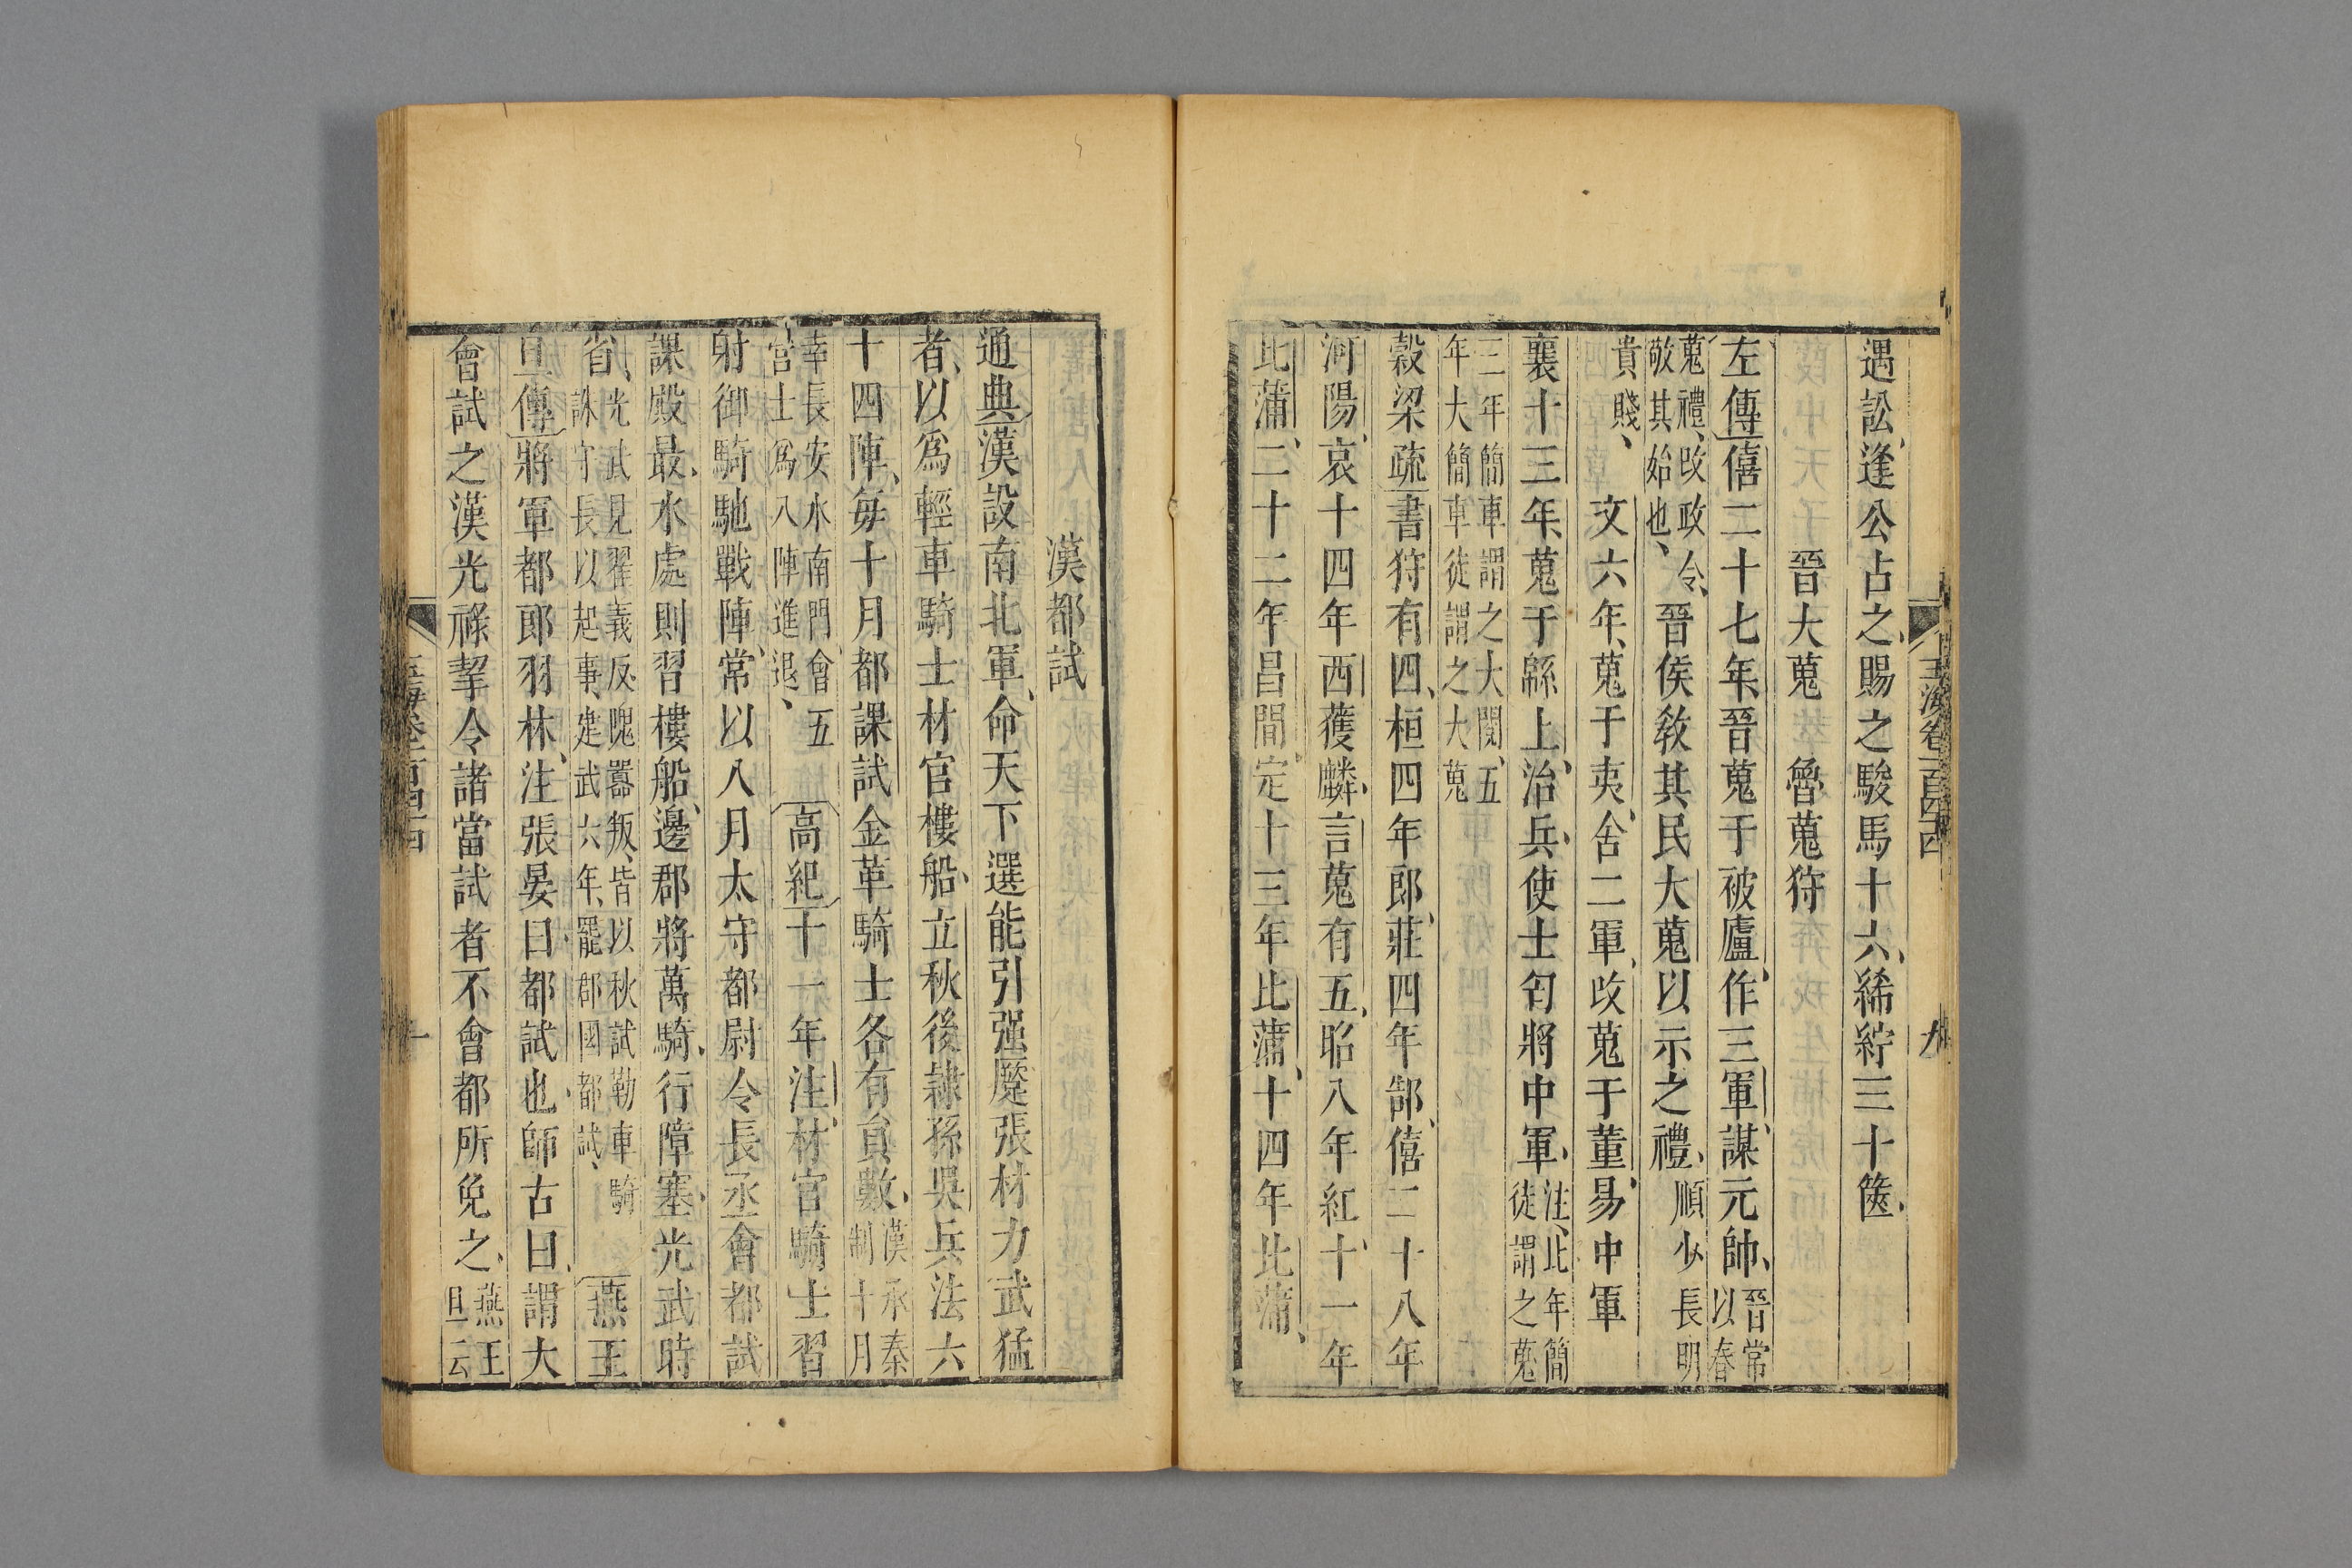 遇訟逢公占之賜之駿馬十六絺紵三十篋
晉大蒐　魯蒐狩
左傳僖二十七年晉蒐于被廬作三軍謀元帥晉常以春
蒐禮改政令敬其始也晉侯敎其民大蒐以示之禮順少長明
貴賤　文六年蒐于夷舍二軍改蒐于董易中軍
襄十三年蒐于緜上治兵使士匄將中軍注此年簡徒謂之蒐
三年簡車謂之大閱五年大簡車徒謂之大蒐
穀梁疏書狩有四桓四年郎莊四年郜僖二十八年
河陽哀十四年西獲麟言蒐有五昭八年紅十一年
比蒲二十二年昌間定十三年比蒲十四年比蒲
漢都試
通典漢設南北軍命天下選能引强蹷張材力武猛
者以爲輕車騎士材官樓船立秋後隷孫吳兵法六
十四陣每十月都課試金革騎士各有員數漢承秦制十月
幸長安水南門會五營士爲八陣進退高紀十一年注材官騎士習
射御騎馳戰陣常以八月太守都尉令長丞會都試
課殿最水處則習樓船邊郡將萬騎行障塞光武時
省光武見翟義反隗囂叛皆以秋試勒車騎誅守長以起事建武六年罷郡國都試燕王
旦傳將軍都郎羽林注張晏曰都試也師古曰謂大
會試之漢光祿挈令諸當試者不會都所免之燕王旦云
玉海卷一百四十四
九